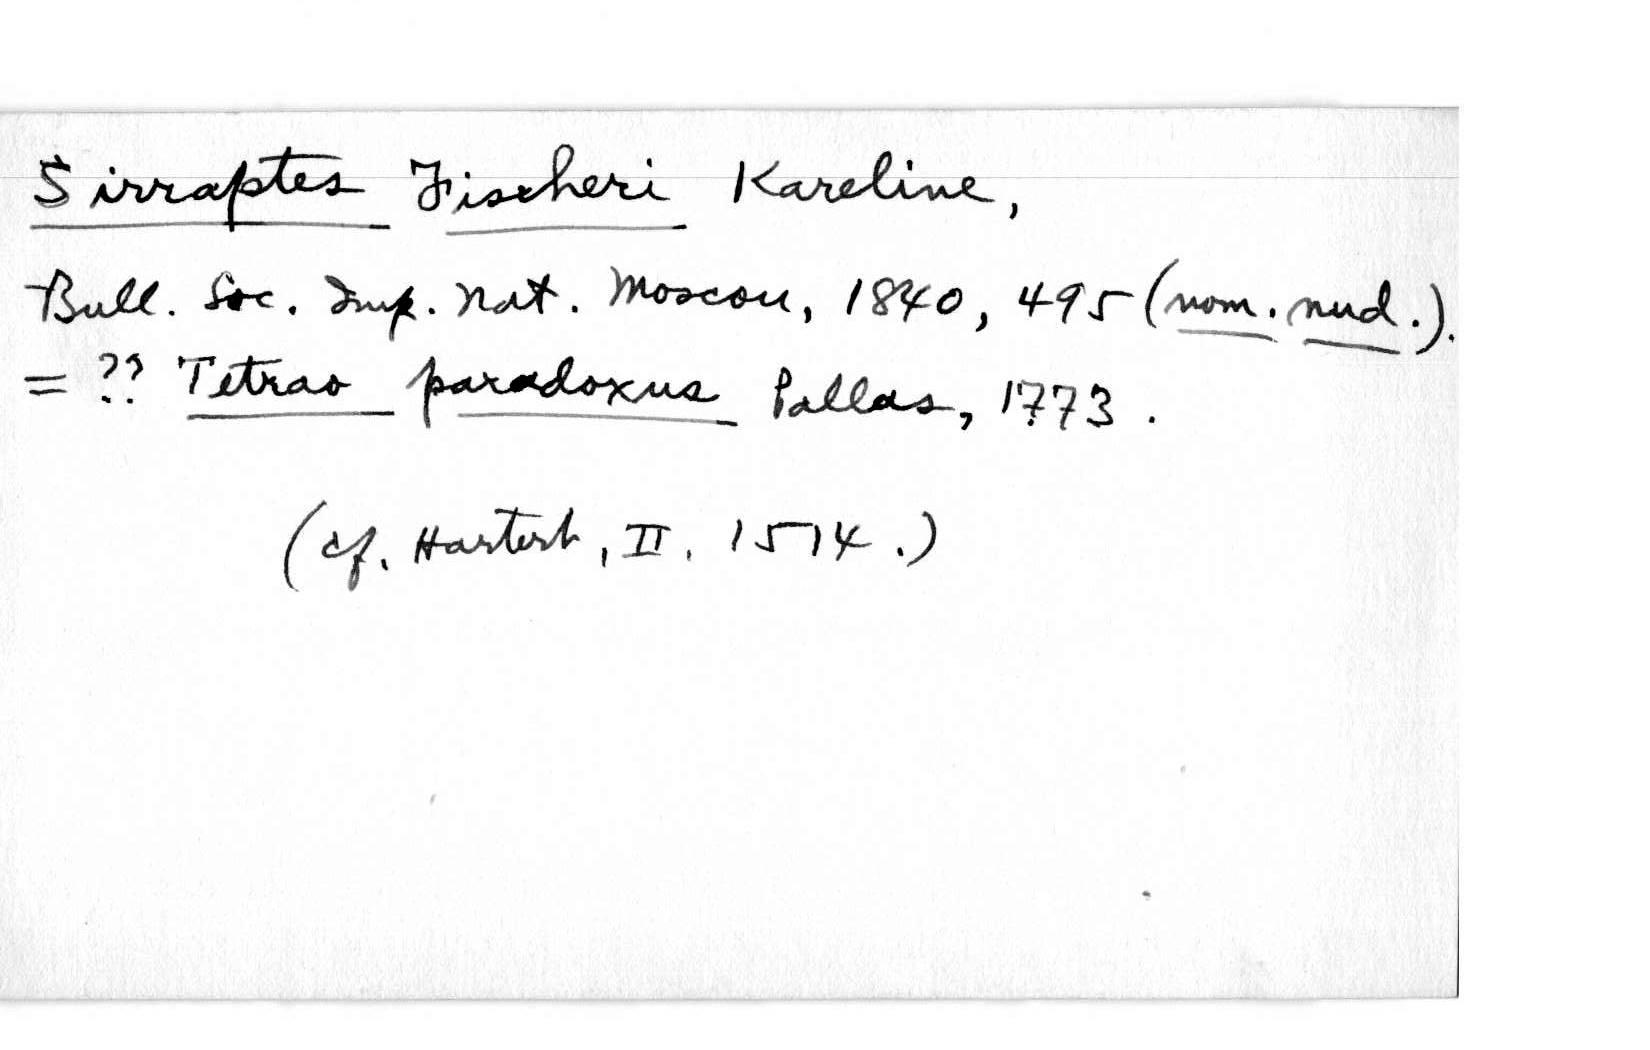 Sirraptes Fischeri Kareline,
Bull. Soc. Imp. Nat. Moscou, 1840, 495 (nom. nud.).
= ?? Tetrao paradoxus Pallas, 1773.
(cf. Hartert, II. 1514.)